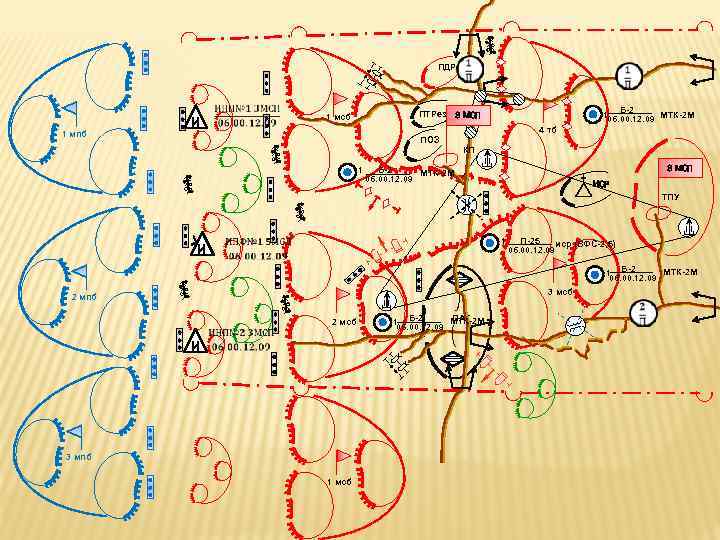 ПДР
ИПП№1 3МСП
06.00.12.09
1 мсб
ПТРез
3 МСП
Б-2
06.00.12.09
МТК-2М
1 мпб
4 тб
ПОЗ
КП
3 МСП
1
Б-2
06.00.12.09
МТК-2М
ИСР
ТПУ
06.00.12.09
П-25
06.00.12.09
испр.ВФС-2,5)
1
Б-2
06.00.12.09
МТК-2М
2 мпб
3 мсб
2 мсб
ИНП№2 3МСП
06.00.12.09
Б-2
06.00.12.09
3 мпб
1 мсб
И
И
И
1
П
1
П
2
П
2
П